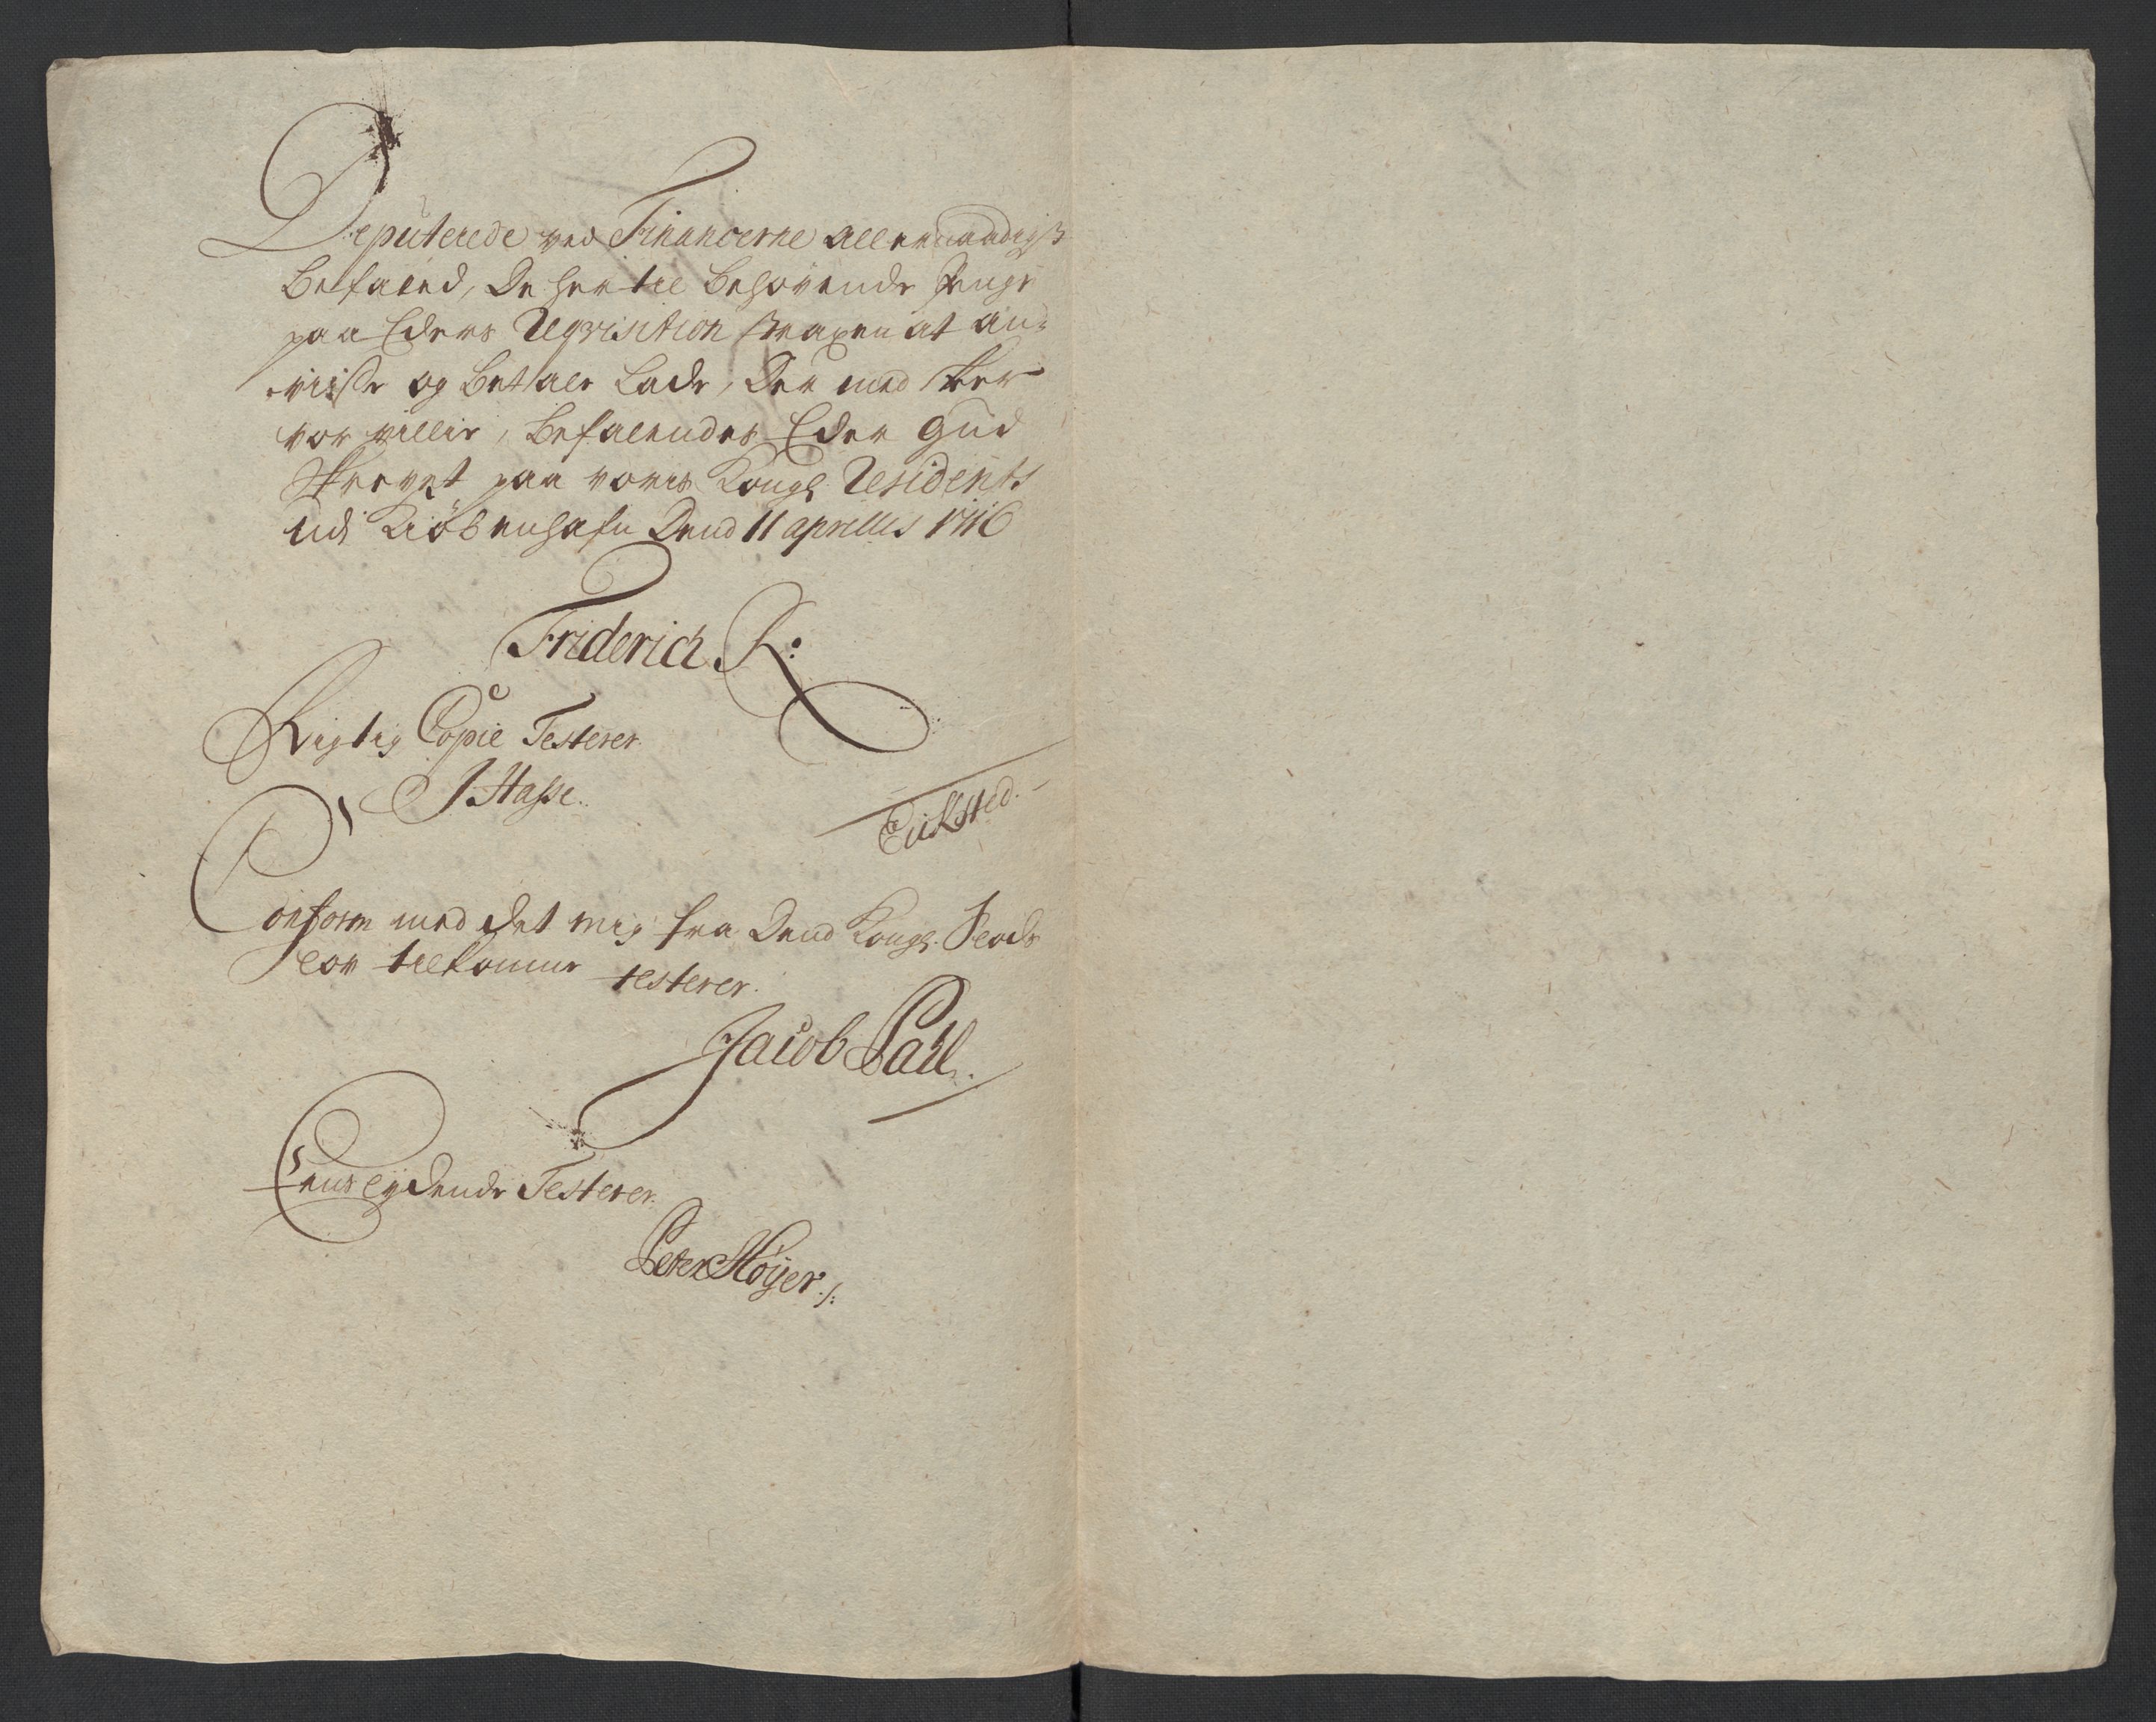 Deputerede ved Financerne allernaadigst
Befaled, De her til behøvende Penge
paa Eders Reqvisition straxen at an-
viise og betale Lade, Der med skeer
vor villie, Befalendes Eder Gud
Skrevet paa vores Kongl: Residents
udi Kiøbenhafn Dend 11 aprilis 1716
Friderich R:
Rigtig Copie Testerer
J Hasse.
Eicksted.
Conform med det mig fra Dend Kongl.
tilkomne testerer.
Jacob
Eenslydende Testerer.
Peter Høyer./: